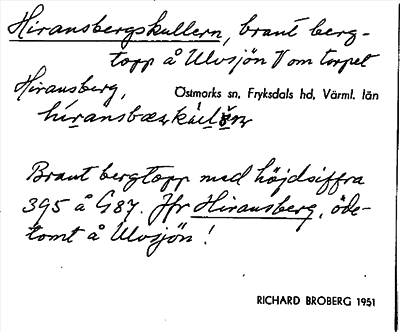 Hiransbergskullern, brant berg-
topp å Ulvsjön V om torpet
Hiransberg,
Östmarks sn, Fryksdals hd, Värml. län
Brant bergtopp med höjdsiffra
395 å G87. Jfr Hiransberg, öde-
tomt å Ulvsjön!
RICHARD BROBERG 1951